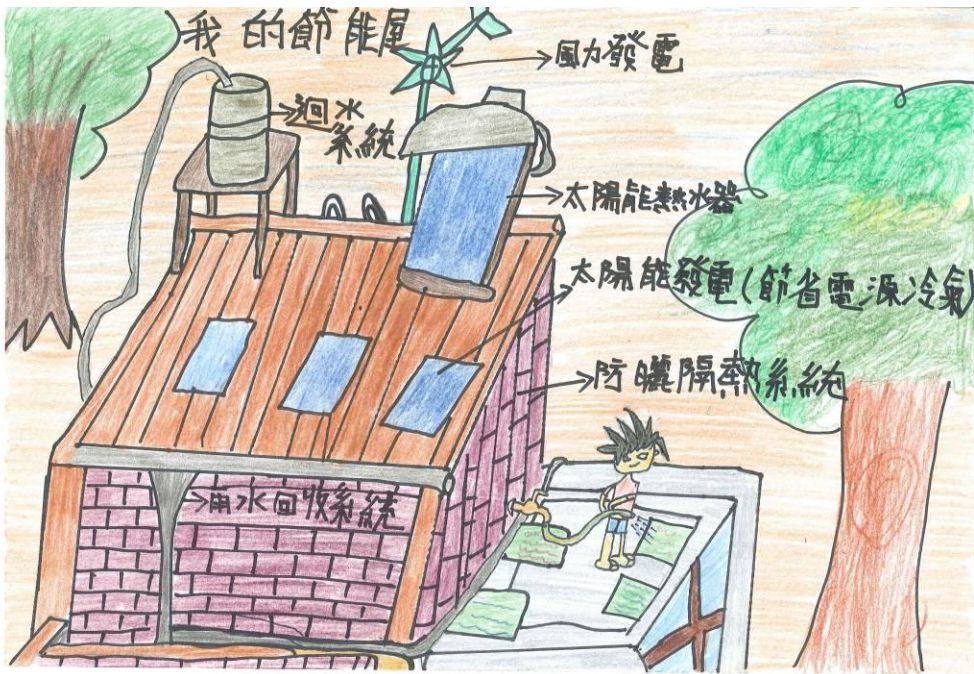 我的節能屋
風力發電
迴水
系統
太陽能熱水器
太陽能發電(節省電源冷氣)
防曬隔熱系統
雨水回收系統